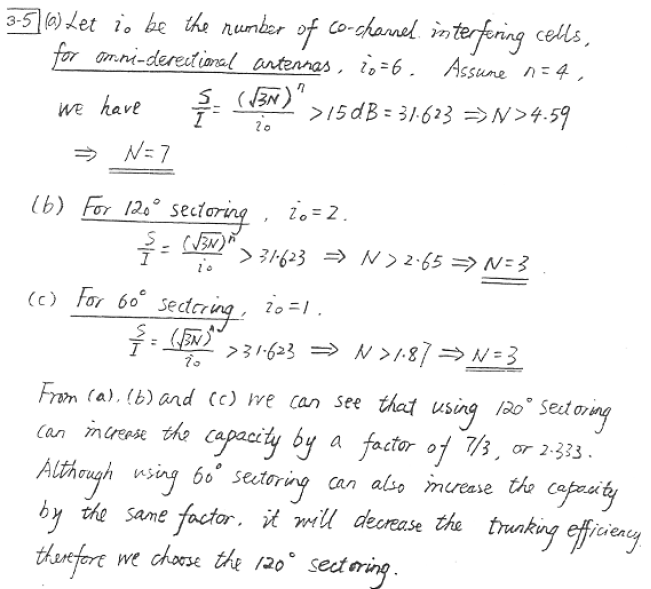 3-5 (a) Let i₀ be the number of co-channel interfering cells,
for omni-derectional antennas, i₀=6. Assume n=4,
we have S/I = (√3N)ⁿ/i₀ > 15dB = 31.623 ⇒ N > 4.59
⇒ N=7
(b) For 120° sectoring, i₀=2.
S/I = (√3N)ⁿ/i₀ > 31.623 ⇒ N > 2.65 ⇒ N=3
(c) For 60° sectoring, i₀=1.
S/I = (√3N)ⁿ/i₀ > 31.623 ⇒ N > 1.87 ⇒ N=3
From (a), (b) and (c) we can see that using 120° sectoring
can increase the capacity by a factor of 7/3, or 2.333.
Although using 60° sectoring can also increase the capacity
by the same factor, it will decrease the trunking efficiency
therefore we choose the 120° sectoring.